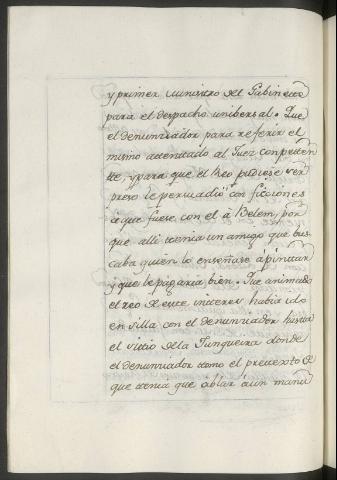 y primer ministro del Gabinette
para el despacho unibersal. Que
el denunziador para referir el
mismo attenttado al Juez conpetten
tte, y para que el Reo pudiese ser
preso le persuadio con ficciones
a que fuese con el á Belem, por
que alli ttenia un amigo que bus
caba quien lo enseñase á pinttar
y que le pagaria bien. Que animado
el reo de estte intteres habia ido
en silla con el denunziador hastta
el sittio de la Jungueira donde
el denunziador ttomo el prettextto de
que ttenia que ablar á un manu